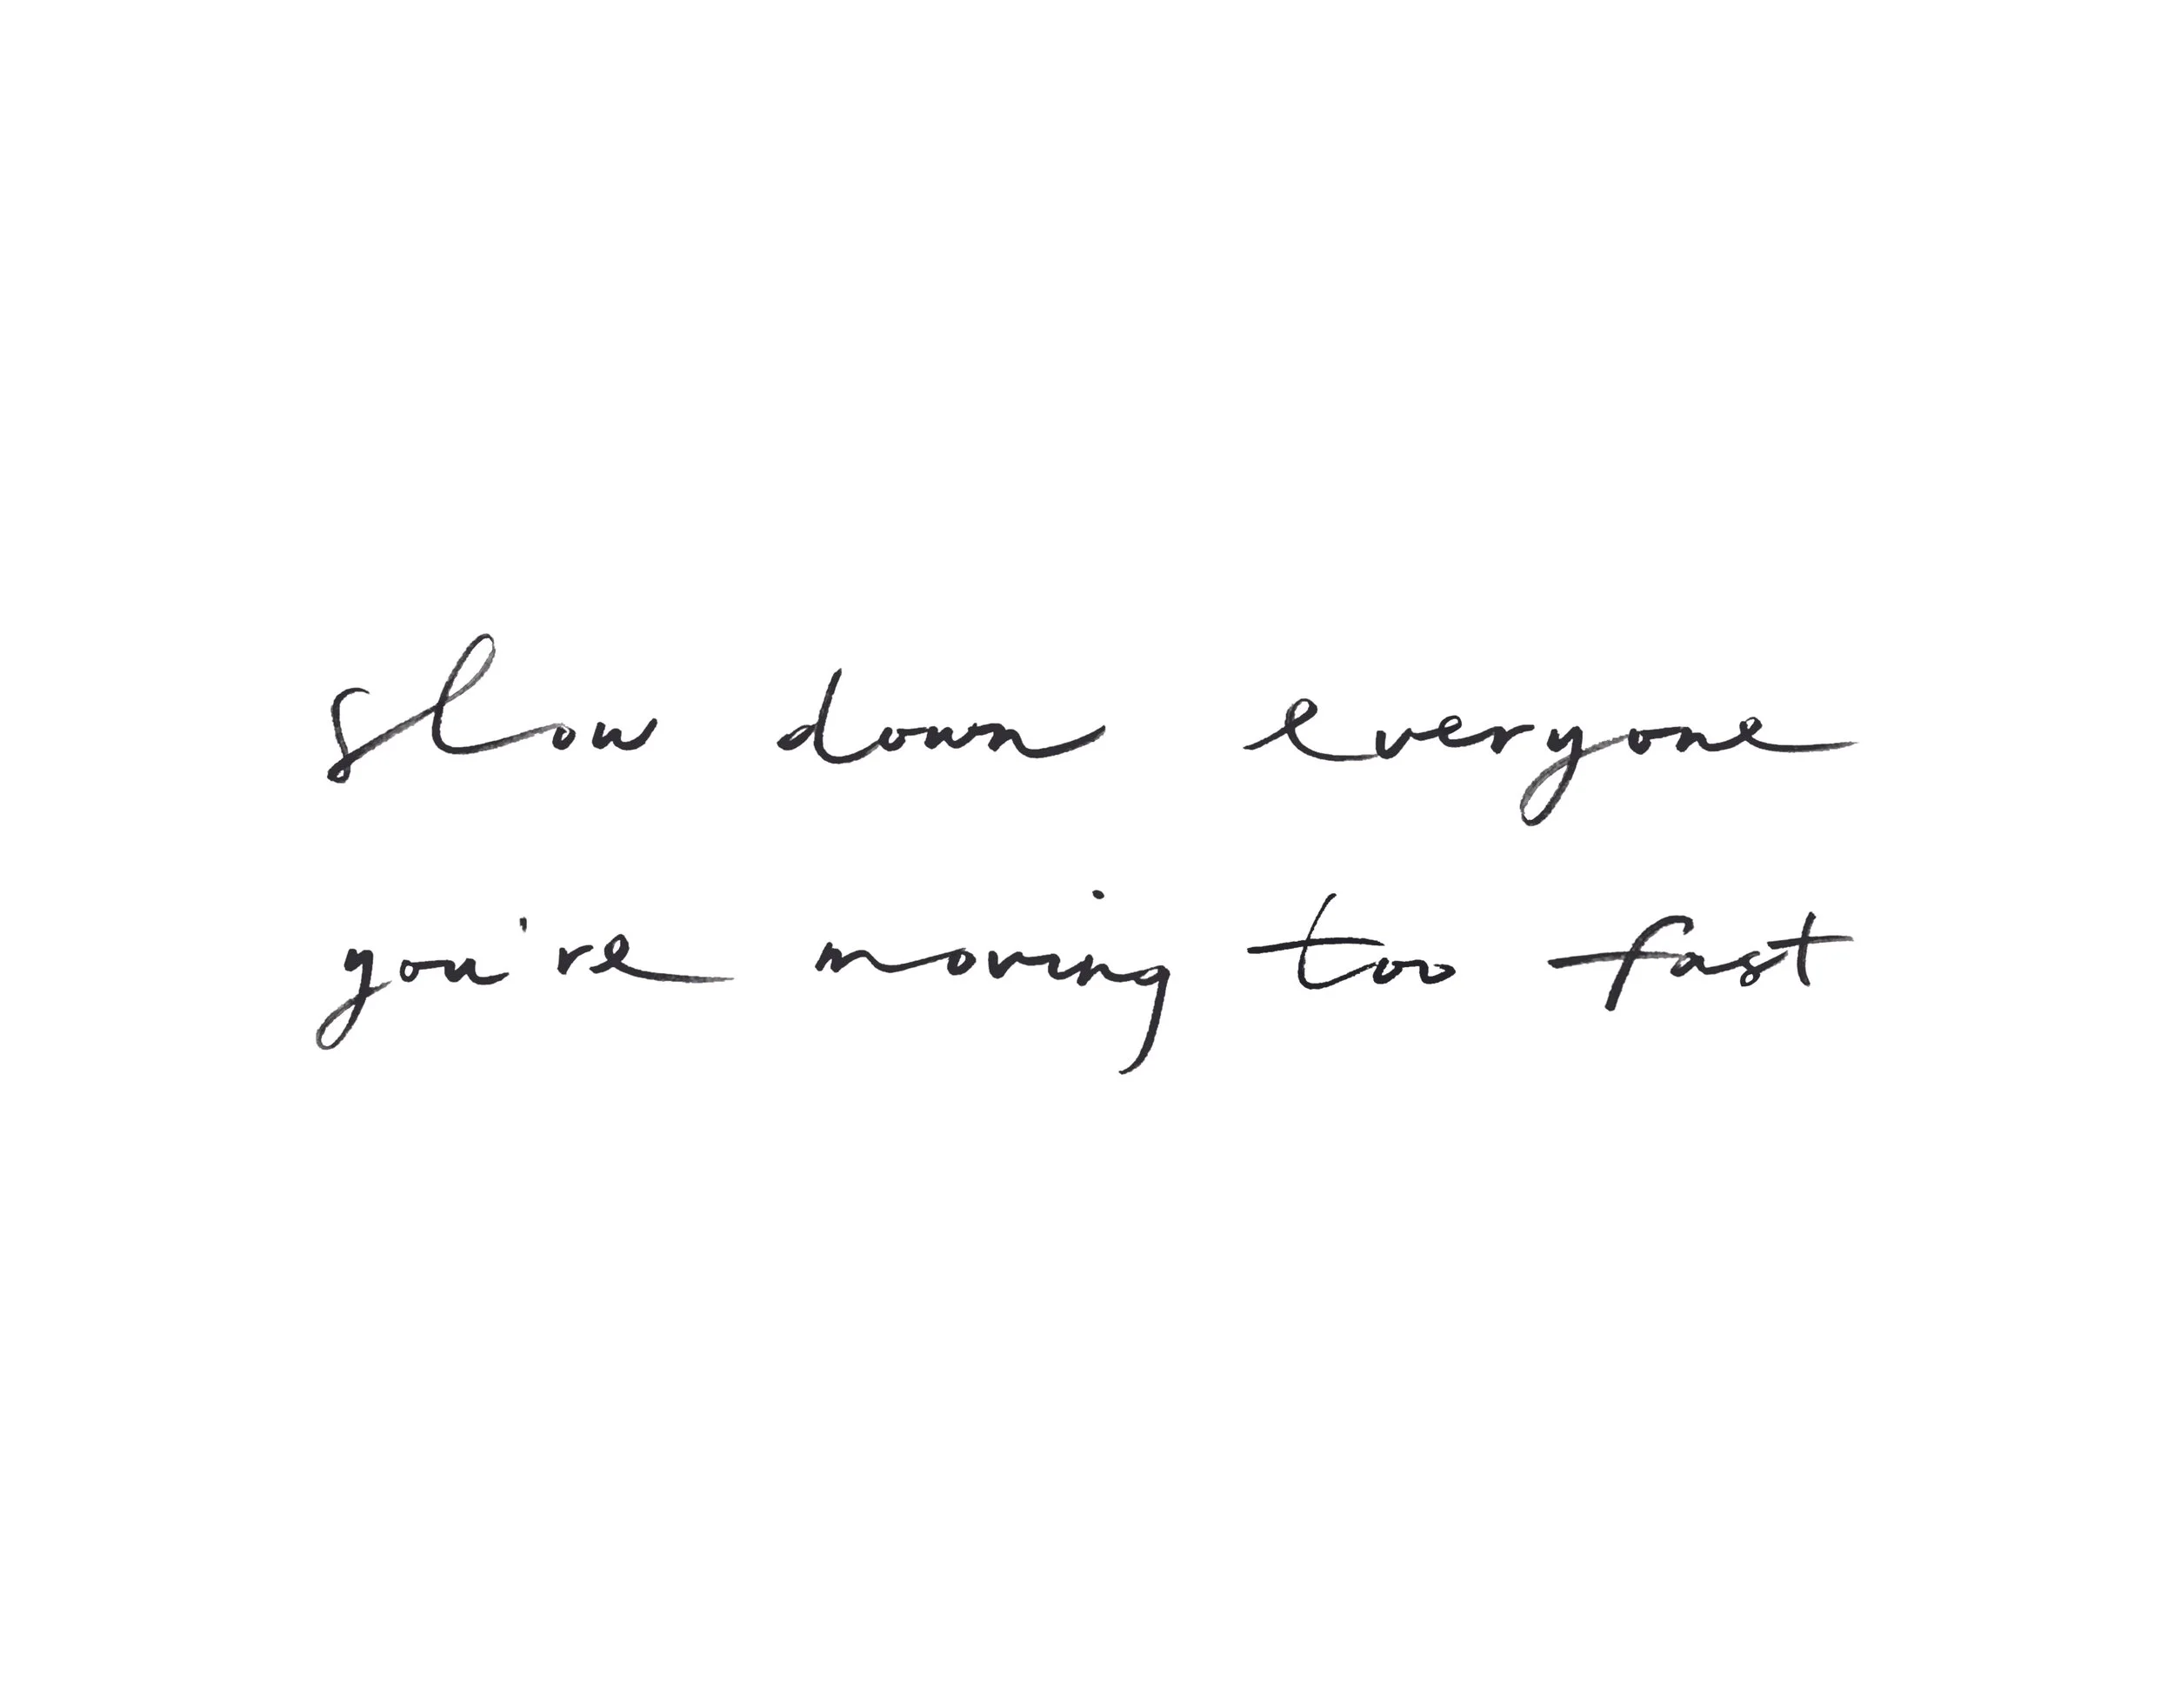 slow down everyone
you're moving too fast